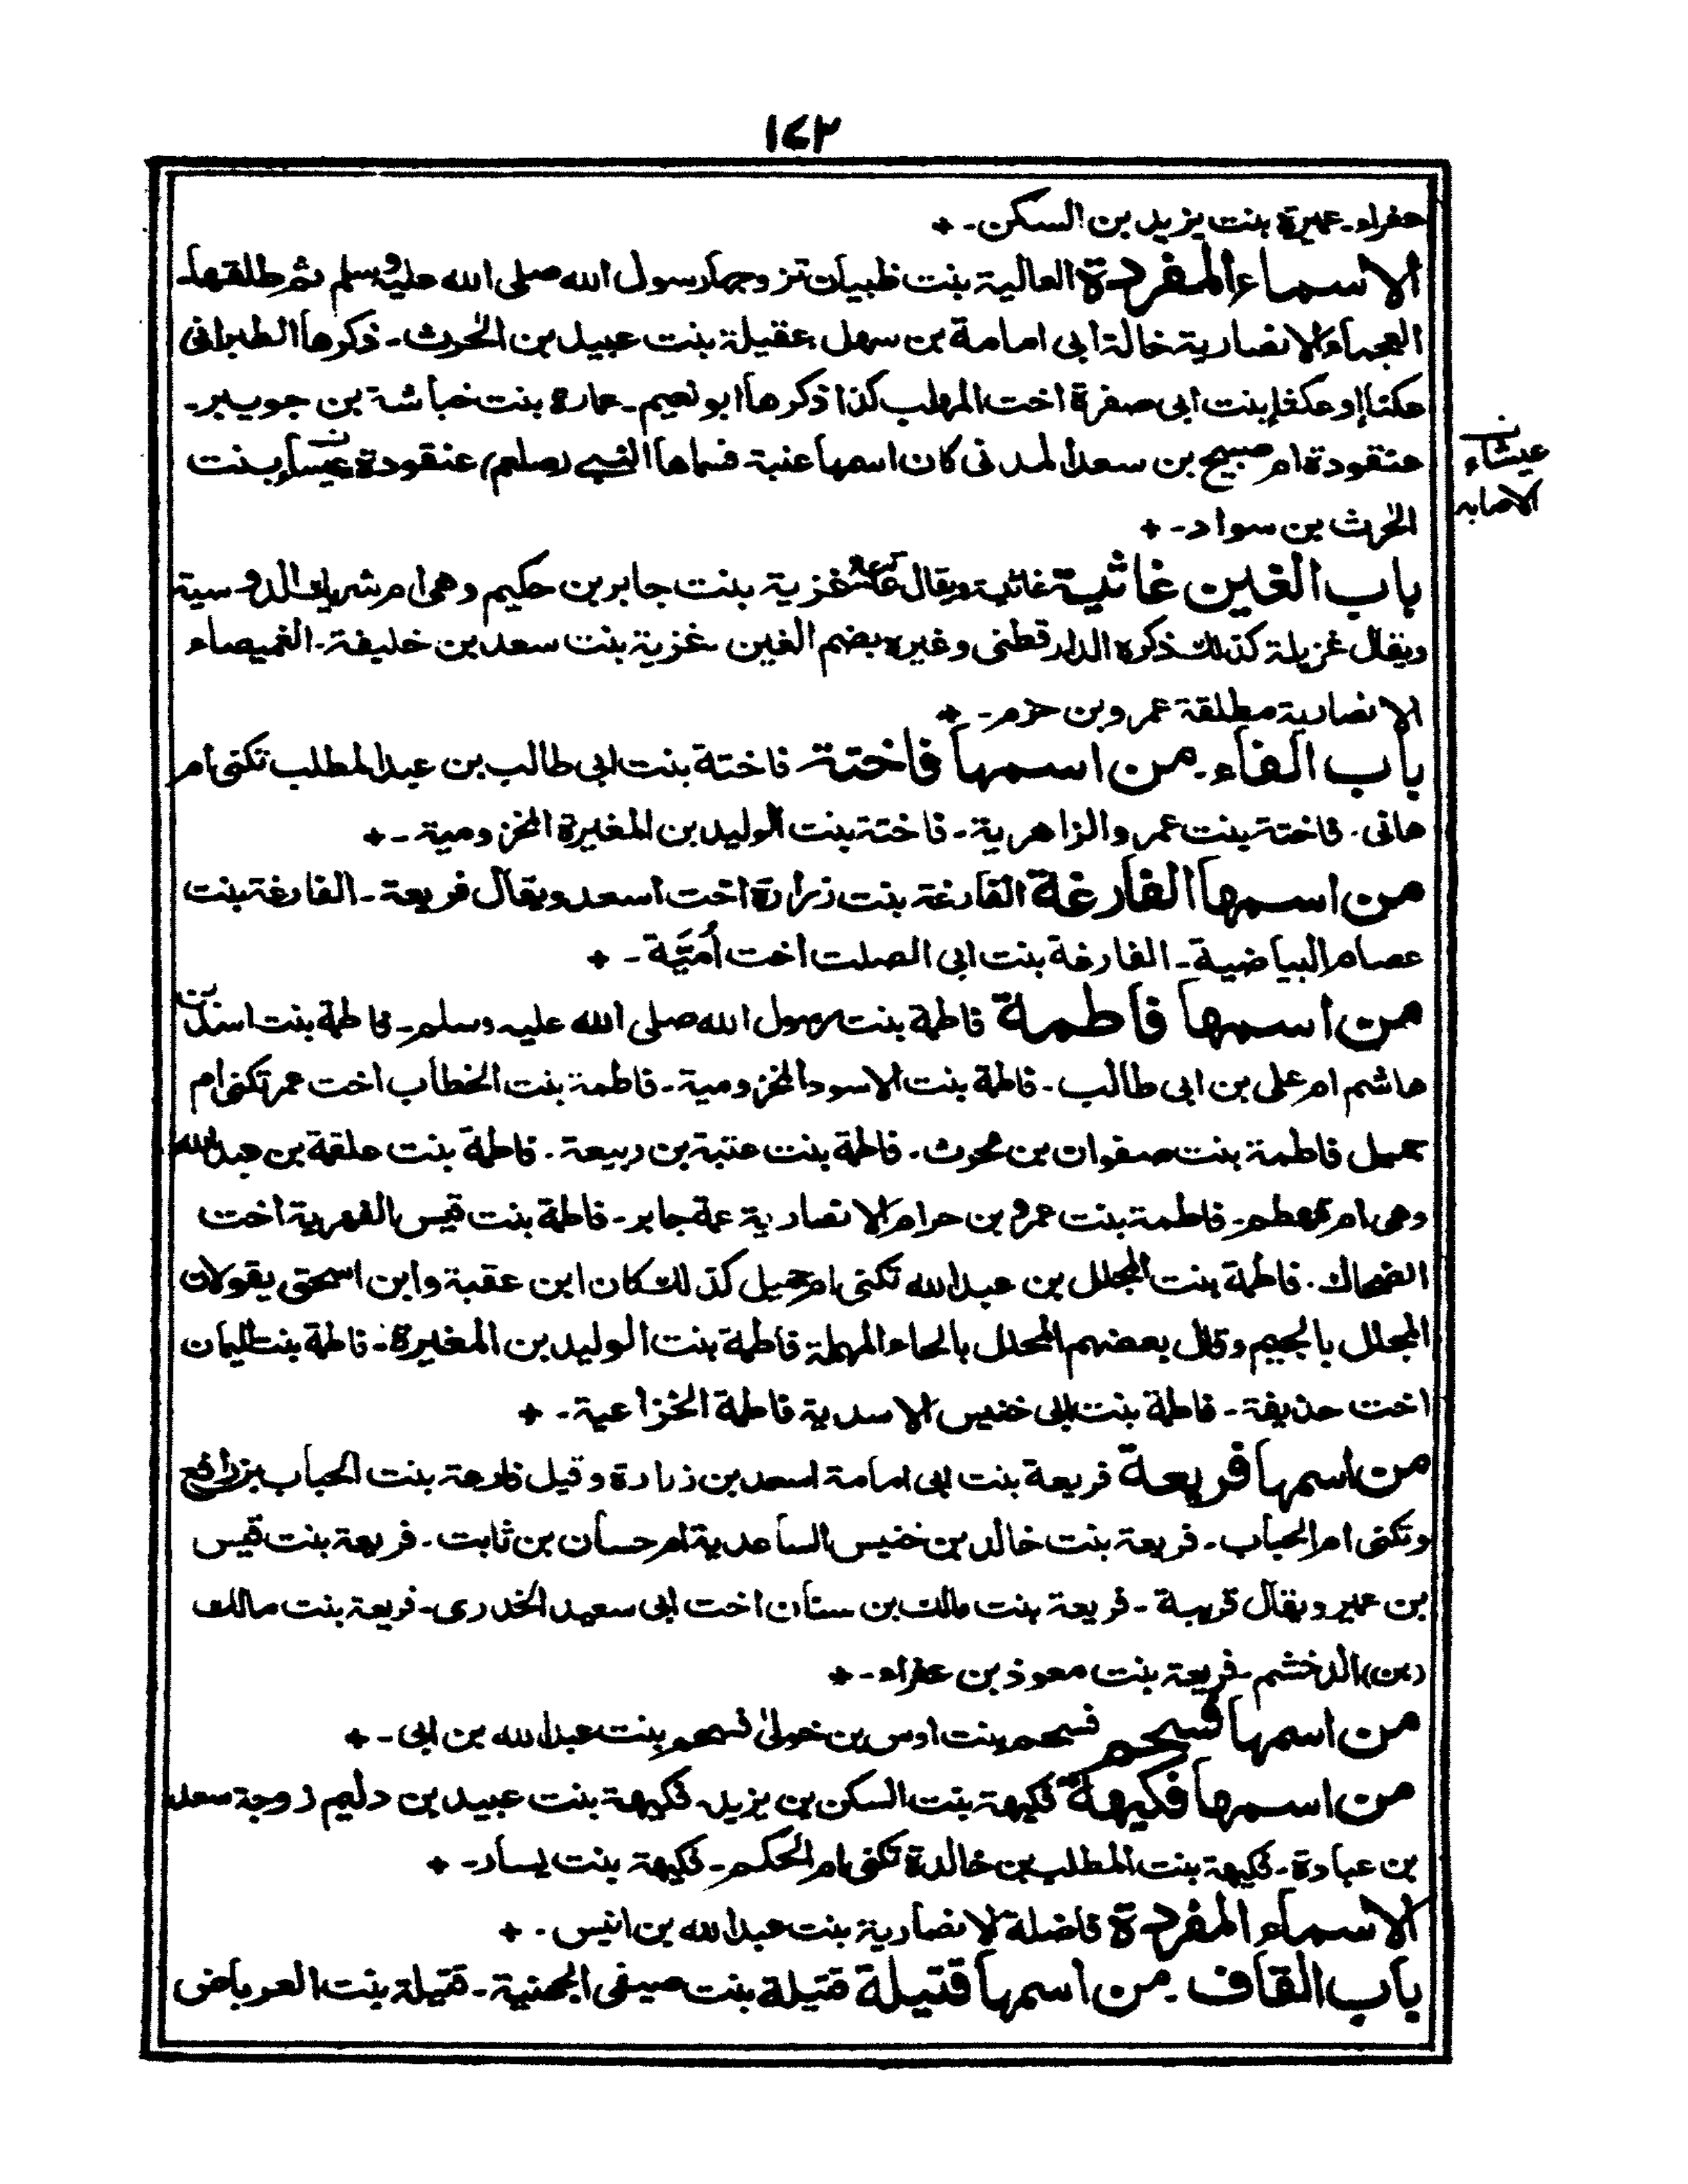 ١٤٣
عفراء۔ عميرة بنت يزيد بن السكن۔ +
الاسماء المفردة العالية بنت ظبيان تزوجها رسول الله صلى الله عليه وسلم ثم طلقها۔
العجماء الانصارية خالة ابى امامة بن سهل۔ عقيلة بنت عبيد بن الحرث۔ ذكرها الطبرانى
عكناء او عكفاء بنت ابى صفرة اخت المهلب كذا ذكرها ابو نعيم۔ عمارة بنت خباشة بن جويبر۔
عنقودة ام صبيح بن سعد المدنى كان اسمها عنبة فسماها النبى (صلعم) عنقودة عيساء بنت
عيشاء ن
الاصابه
الحرث بن سواد۔ +
باب الغين غاثية غاثية ويقال غزية بنت جابر بن حكيم وهى ام شريك الدوسية
ويقال غزيلة كذلك ذكره الدارقطنى وغيره بضم الغين۔ غزية بنت سعد بن خليفة۔ الغميصاء
الانصارية مطلقة عمرو بن حزم۔ +
باب الفاء۔ من اسمها فاختة فاختة بنت ابى طالب بن عبد المطلب تكنى ام
هانى۔ فاختة بنت عمرو الزاهرية۔ فاختة بنت الوليد بن المغيرة المخزومية۔ +
من اسمها الفارغة الفارغة بنت زرارة اخت اسعد ويقال فريعة۔ الفارغة بنت
عصام البياضية۔ الفارغة بنت ابى الصلت اخت أُمَيَّة۔ +
من اسمها فاطمة فاطمة بنت رسول الله صلى الله عليه وسلم۔ فاطمة بنت اسد بن
هاشم ام على بن ابى طالب۔ فاطمة بنت الاسود المخزومية۔ فاطمة بنت الخطاب اخت عمر تكنى ام
جميل فاطمة بنت صفوان بن محرث۔ فاطمة بنت عتبة بن ربيعة۔ فاطمة بنت علقمة بن عبد الله
وهى ام قهطم۔ فاطمة بنت عمرو بن حرام الانصارية عمة جابر۔ فاطمة بنت قيس الفهرية اخت
الضحاك۔ فاطمة بنت المجلل بن عبد الله تكنى ام جميل كذلك كان ابن عقبة وابن اسحق يقولان
المجلل بالجيم وقال بعضهم المحلل بالحاء المهملة فاطمة بنت الوليد بن المغيرة۔ فاطمة بنت اليمان
اخت حذيفة۔ فاطمة بنت ابى خنيس الاسدية فاطمة الخزاعية۔ +
من اسمها فريعة فريعة بنت ابى امامة اسعد بن زرارة وقيل فارعة بنت الحباب بن رافع
وتكنى ام الحباب۔ فريعة بنت خالد بن خنيس الساعدية ام حسان بن ثابت۔ فريعة بنت قيس
بن عمير ويقال قريبة۔ فريعة بنت مالك بن سنان اخت ابى سعيد الخدرى۔ فريعة بنت مالك
(بن) الدخشم۔ فريعة بنت معوذ بن عفراء۔ +
من اسمها فسحم فسحم بنت اوس بن خولىٰ فسحم بنت عبد الله بن ابى۔ +
من اسمها فكيهة فكيهة بنت السكن بن يزيد۔ فكيهة بنت عبيد بن دليم زوجة سعد
بن عبادة۔ فكيهة بنت المطلب بن خالدة تكنى ام الحكم۔ فكيهة بنت يسار۔ +
الاسماء المفردة فاضلة الانصارية بنت عبد الله بن انيس۔ +
باب القاف۔ من اسمها قتيلة قتيلة بنت صيفى الجهنية۔ قتيلة بنت العرباض